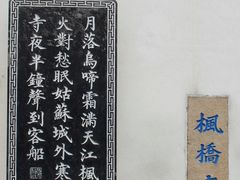 楓橋
月落烏啼霜滿天江楓
火對愁眠姑蘇城外寒
寺夜半鐘聲到客船